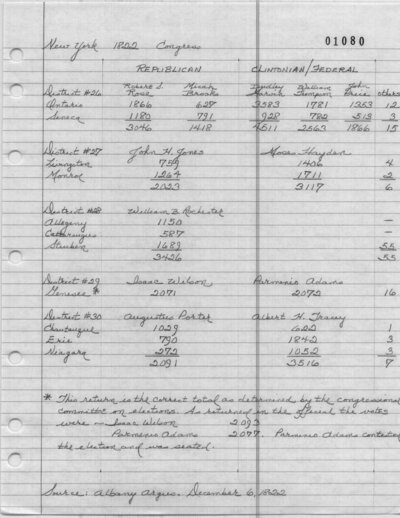 01080
New York 1822 Congress
REPUBLICAN CLINTONIAN/FEDERAL
District #26 Robert S. Rose Micah Brooks Dudley Marvin William Thompson John Price others
Ontario 1866 627 3583 1781 1353 12
Seneca 1180 791 928 782 513 3
3046 1418 4511 2563 1866 15
District #27 John H. Jones Moses Hayden
Livingston 759 1406 4
Monroe 1264 1711 2
2023 3117 6
District #28 William B. Rochester
Allegany 1150 —
Cattaraugus 587 —
Steuben 1689 55
3426 55
District #29 Isaac Wilson Parmenio Adams
Genesee * 2071 2072 16
District #30 Augustus Porter Albert H. Tracy
Chautauque 1029 622 1
Erie 790 1842 3
Niagara 272 1052 3
2091 3516 7
* This return is the correct total as determined by the congressional
committee on elections. As returned in the official the votes
were — Isaac Wilson 2093
Parmenio Adams 2077. Parmenio Adams contested
the election and was seated.
Source: Albany Argus. December 6, 1822